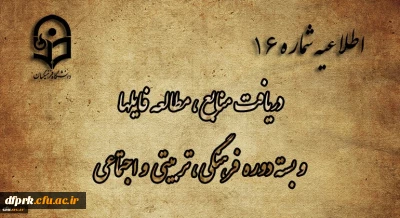 اطلاعیه شماره ۱۶
دانشگاه فرهنگیان
دریافت منابع ، مطالعه فایلها
و بسته دوره فرهنگی، تربیتی و اجتماعی
dfprk.cfu.ac.ir